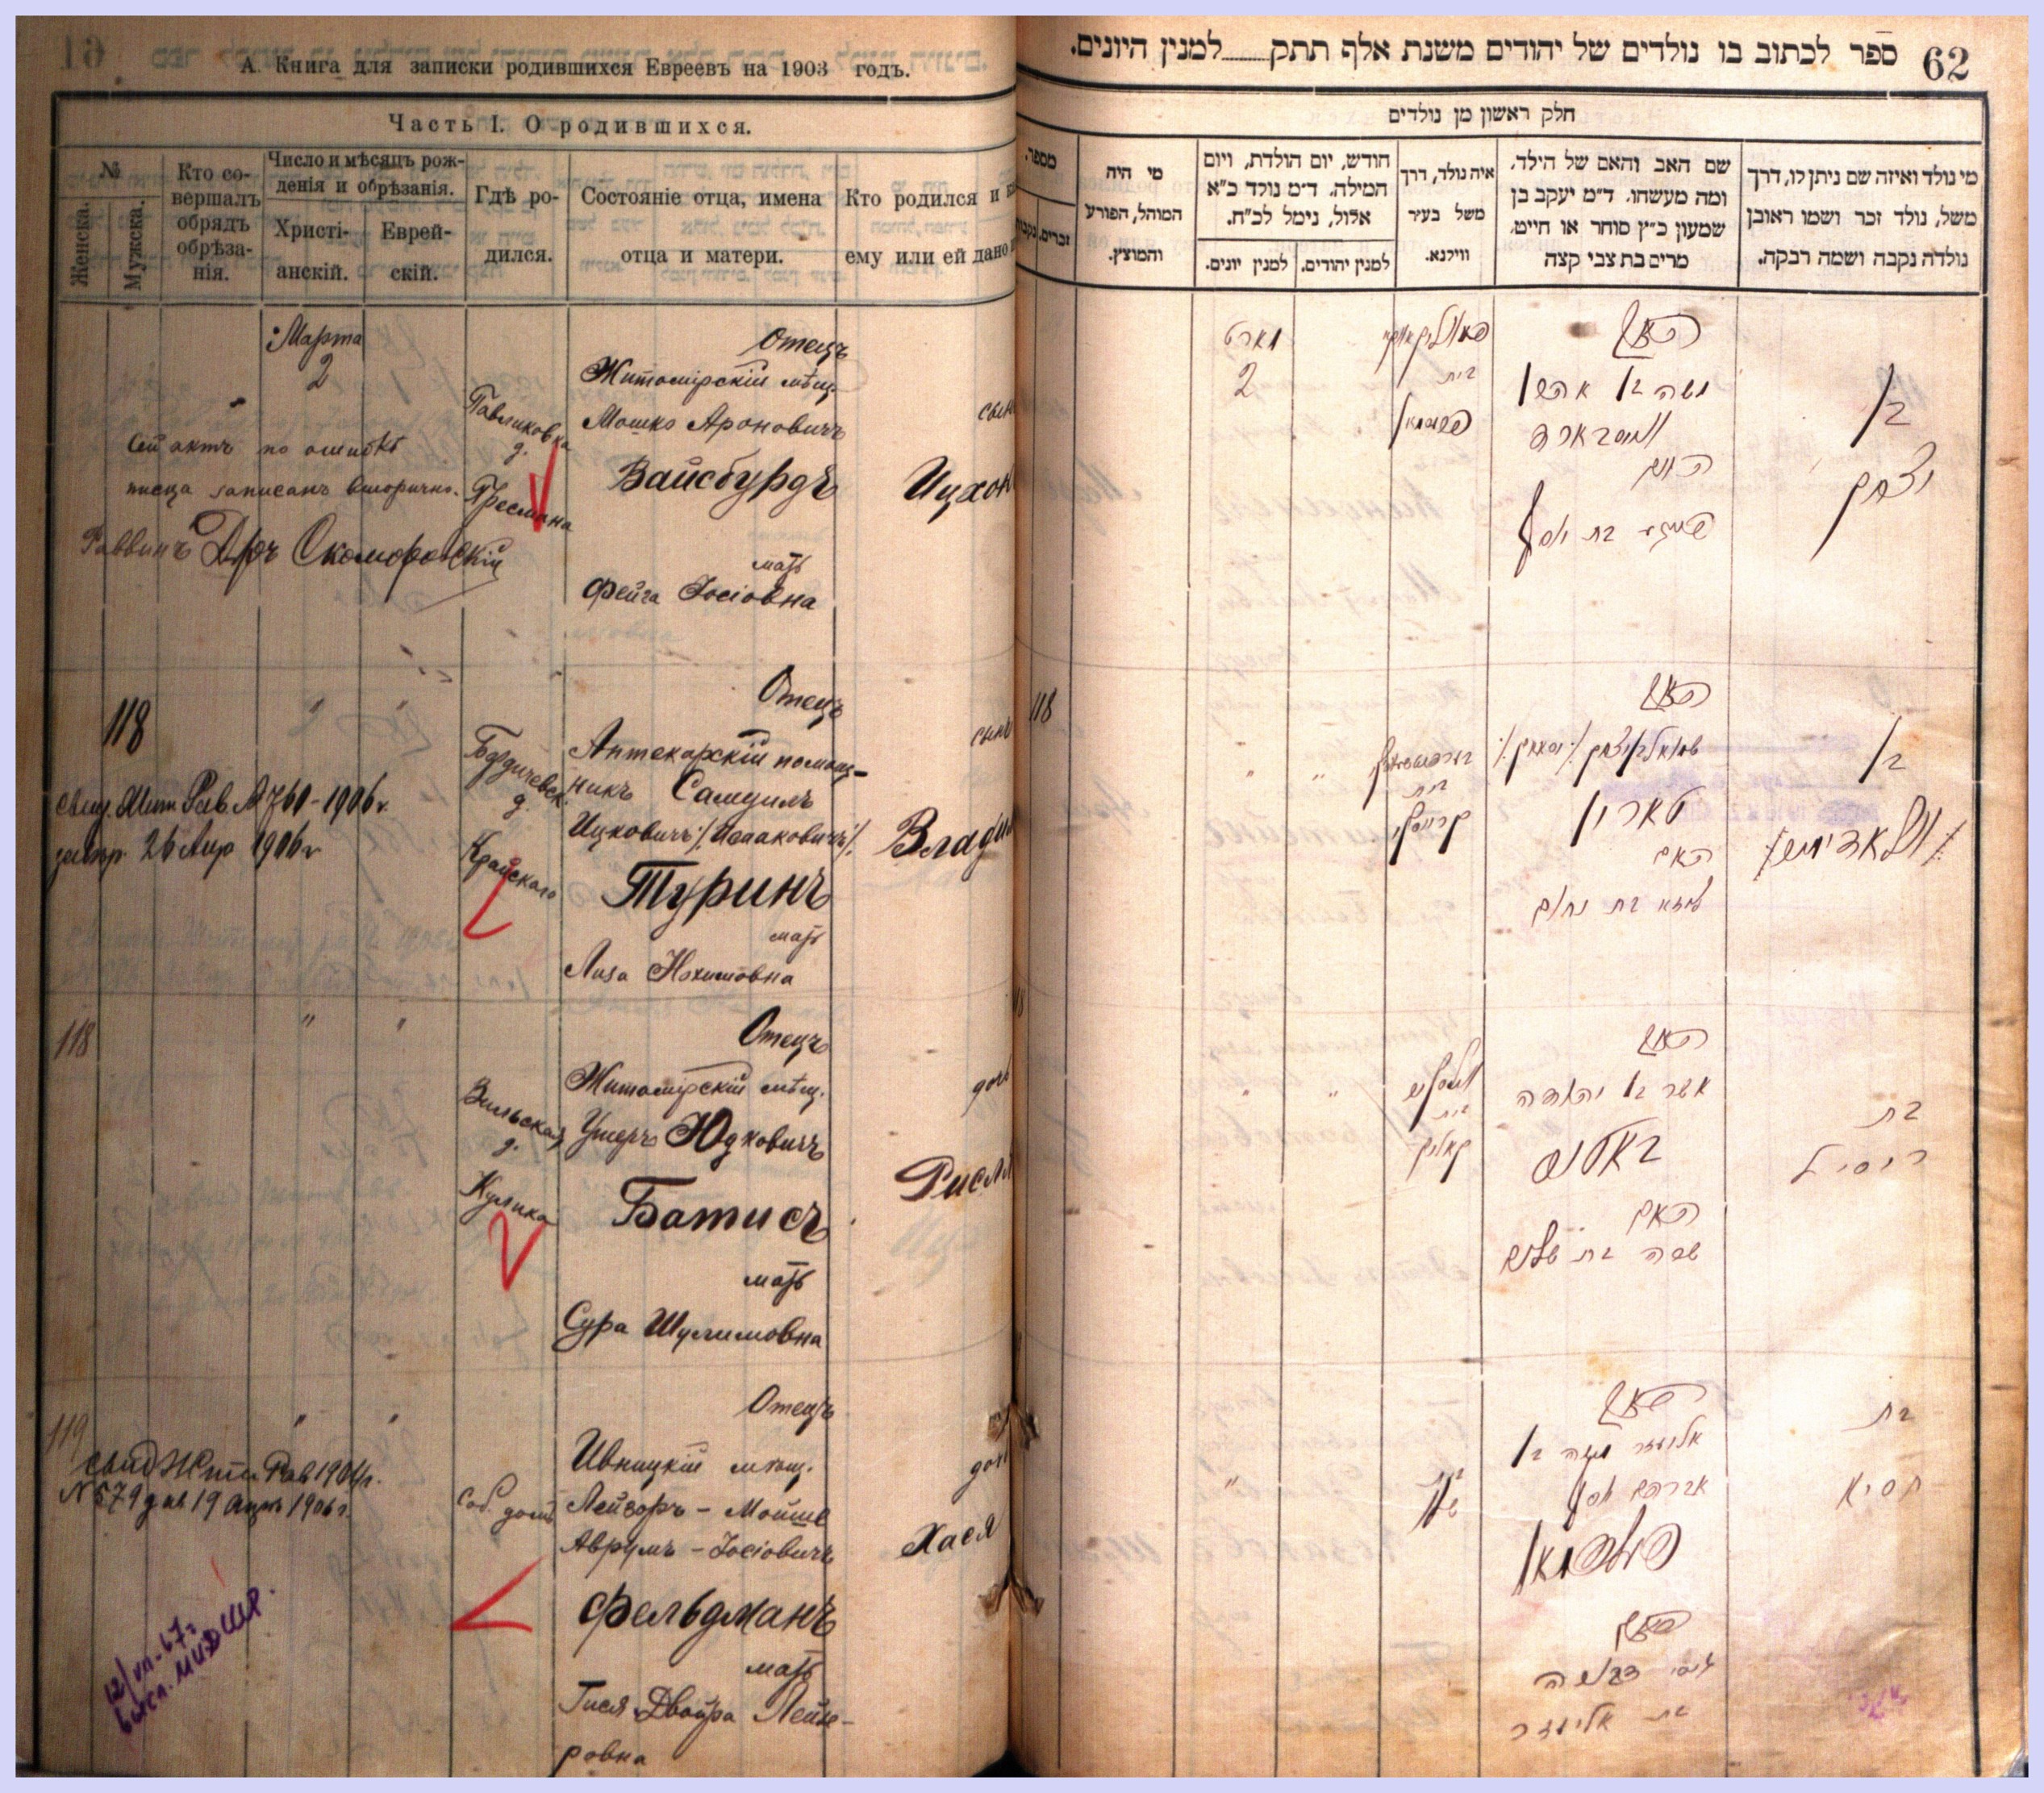 А. Книга для записки родившихся Евреевъ на 1903 годъ.
Часть I. О родившихся.
№
Женска.
Мужска.
Кто со-
вершалъ
обрядъ
обрѣза-
нія.
Число и мѣсяцъ рож-
денія и обрѣзанія.
Христі-
анскій.
Еврей-
скій.
Гдѣ ро-
дился.
Состояніе отца, имена
отца и матери.
Кто родился и
ему или ей дано
Марта
2
Сей актъ по ошибкѣ
писца записанъ вторично.
Раввинъ Д-ръ Скоморовскій
Павликовка
д.
Отецъ
Житомірскій мѣщ.
Мошко Ароновичъ
Вайсбурдъ
мать
Фейга Іосіовна
сынъ
Ицхок
118
свид. Жит. Рав. № 760 - 1906 г.
26 Апр 1906 г
"
"
Бердичевск.
д.
Крайского
Отецъ
Аптекарскій помощ-
никъ Самуилъ
Ицковичъ /:Исааковичъ:/
Туринъ
мать
Лиза Нохимовна
сынъ
Влади
118
"
"
Вильская
д.
Кулика
Отецъ
Житомірскій мѣщ.
Ушеръ Юдковичъ
Батисъ
мать
Сура Шулимовна
дочь
Рисля
119
"
"
свид Жит. Рав 1906 г.
№ 579 19 Апр 1906 г.
12/VII-67 г.
Соб. домъ
Отецъ
Ивницкій мѣщ.
Лейзоръ - Мойше
Аврумъ - Іосіовичъ
Фельдманъ
мать
Гися Двойра Лейзе-
ровна
дочь
Хася
ספר לכתוב בו נולדים של יהודים משנת אלף תתק למנין היונים.
62
חלק ראשון מן נולדים
מספר.
זכרים.
מי היה
המוהל, הפורע
והמוצץ.
חודש, יום הולדת, ויום
המילה. ד״מ נולד כ״א
אלול, נימל לכ״ח.
למנין יונים.
למנין יהודים.
איה נולד, דרך
משל בעיר
ווילנא.
שם האב והאם של הילד.
ומה מעשהו. ד״מ יעקב בן
שמעון כ״ץ סוחר או חייט,
מרים בת צבי קצה
מי נולד ואיזה שם ניתן לו, דרך
משל, נולד זכר ושמו ראובן
נולדה נקבה ושמה רבקה.
מארט
2
בית
האב
משה בן אהרן
ווייסבארד
האם
פייגא בת יוסף
בן
יצחק
118
"
"
בית
האב
שמואל בן יצחק /:איסאאק:/
טורין
האם
ליזא בת נחום
בן
וולאדימיר
"
"
ווילסקע
בית
קוליק
האב
אשר בן יהודה
באטיס
האם
שרה בת שלום
בת
ריסיל
"
האב
אליעזר משה בן
אברהם יוסף
פעלדמאן
האם
גיסי דבורה
בת אליעזר
בת
חסיא